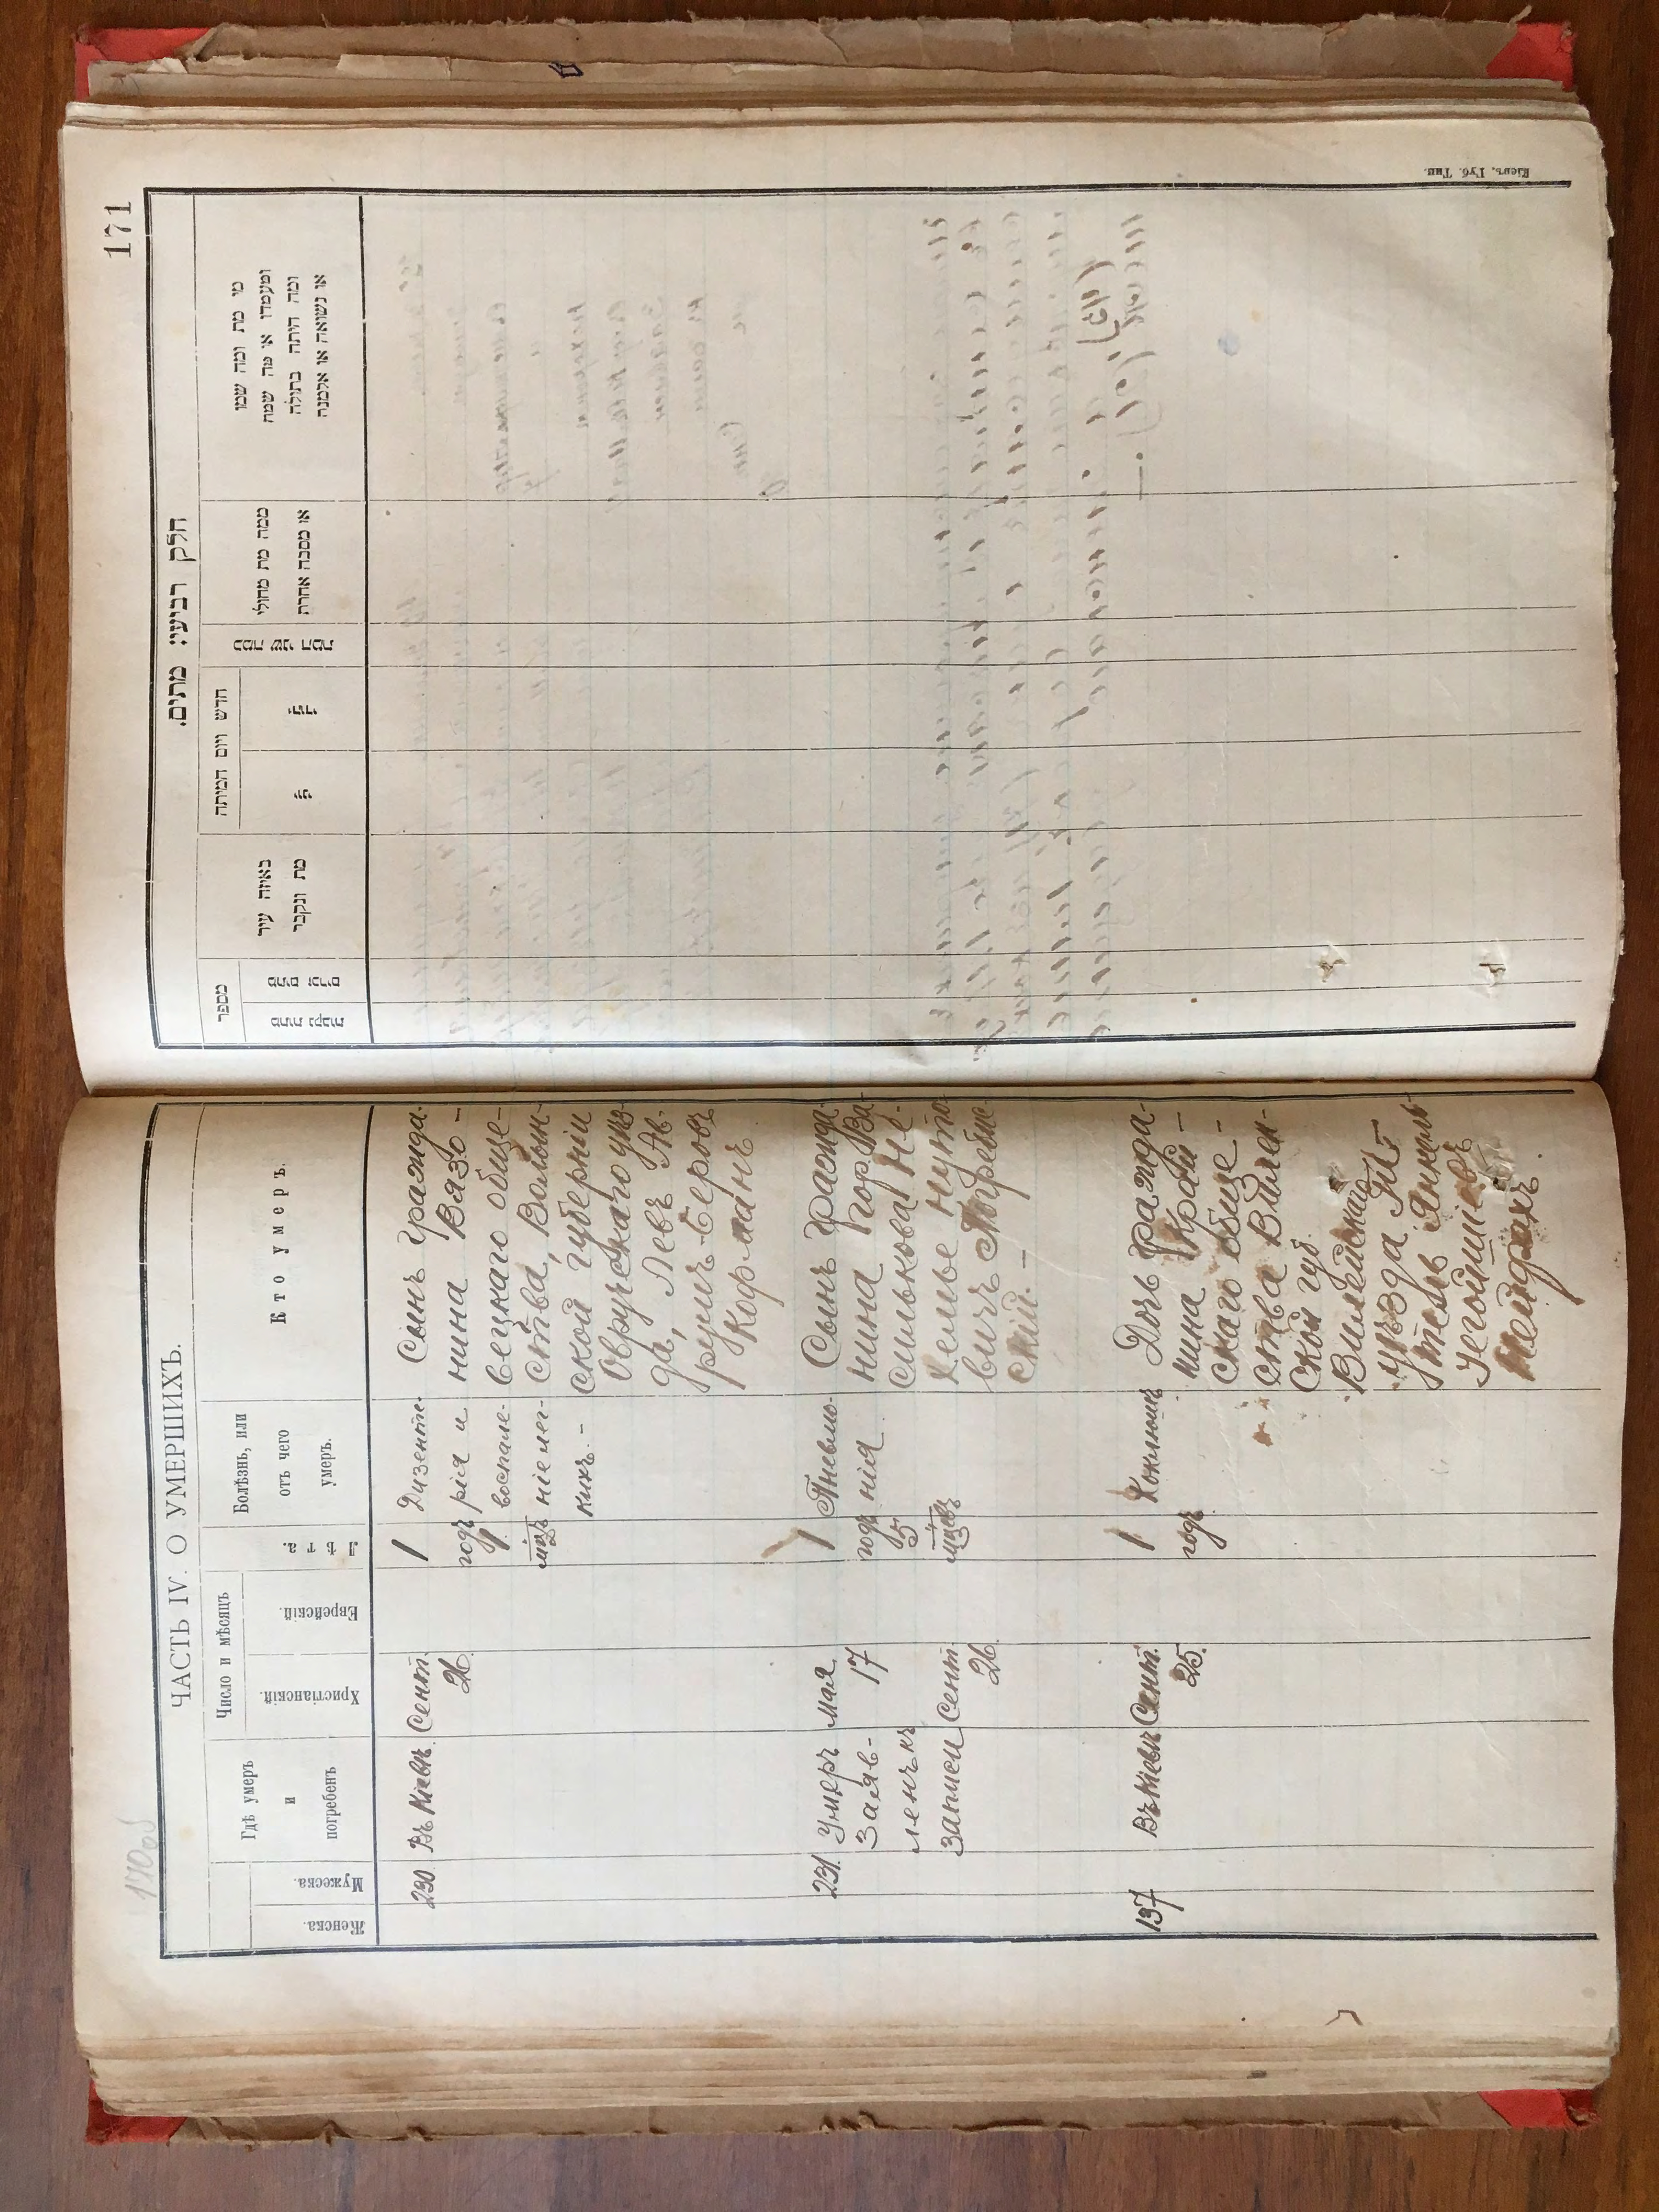 170об
ЧАСТЬ IV. О УМЕРШИХЪ.
Женска.
Мужеска.
Гдѣ умеръ
и
погребенъ
Число и мѣсяцъ
Христіанскій.
Еврейскій.
Лѣта.
Болѣзнь, или
отъ чего
умеръ.
Кто умеръ.
230
Въ Кіевѣ
Сент.
26.
1
годъ
1
мцъ
Дизенте-
рія и
воспале-
ніе лег-
кихъ. -
Сынъ гражда-
нина Вязо-
вецкаго обще-
ства, Волын-
ской губерніи
Овручскаго уѣз-
да, Левъ Аб-
румъ-Беровъ
Корманъ
231.
Умеръ
Заяв-
ленъ къ
записи
мая
17
Сент.
26.
1
годъ
5
мцевъ
Пневмо-
нія
Сынъ гражда-
нина гор. Ва-
силькова Не-
хемье Нуто-
вичъ Погребин-
скій. -
137
Въ Кіевѣ
Сент.
25.
1
годъ
Коклюшъ
Дочь гражда-
нина Край-
скаго обще-
ства Вилен-
ской губ.
Вилейскаго
уѣзда
Янкель-
Неймарк.
171
חלק רביעי מתים.
מספר
באיזה עיר
מת ונקבר
חדש ויום המיתה
ממה מת מחולי
או מסבה אחרת
מי מת ומה שמו
ומעמדו או מה שמה
ומה היתה בתולה
או נשואה או אלמנה
Кіевъ, Губ. Тип.